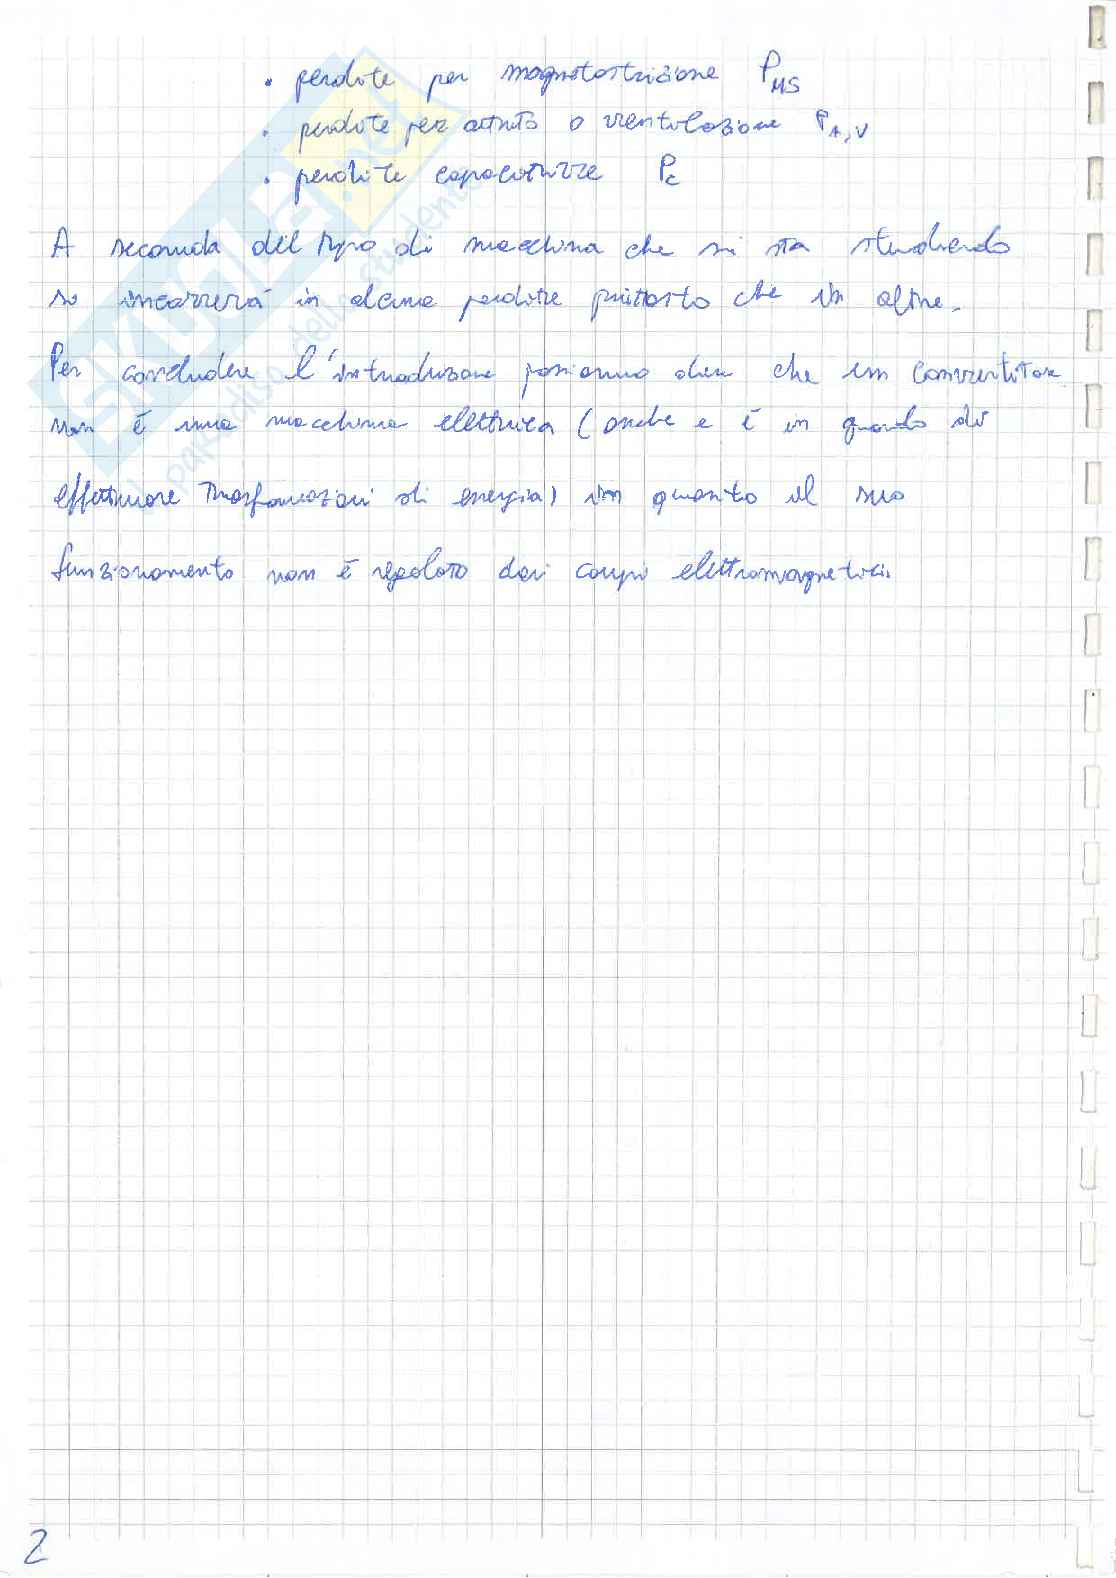 • perdite per magnetostrizione P_MS
• perdite per attrito o ventilazione P_A,V
• perdite capacitive P_C
A seconda del tipo di macchina che si sta studiando
si incorrerà in alcune perdite piuttosto che in altre.
Per concludere l'introduzione possiamo dire che un convertitore
non è una macchina elettrica (anche se è in grado di
effettuare trasformazioni di energia) in quanto il suo
funzionamento non è regolato dai campi elettromagnetici.
2
SKUOLA.net
il paradiso dello studente